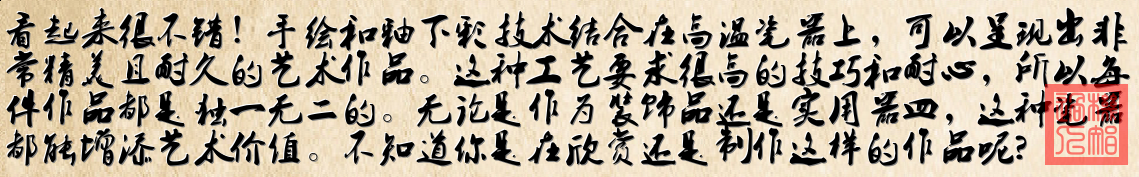 看起来很不错！手绘和釉下彩技术结合在高温瓷器上，可以呈现出非
常精美且耐久的艺术作品。这种工艺要求很高的技巧和耐心，所以每
件作品都是独一无二的。无论是作为装饰品还是实用器皿，这种瓷器
都能增添艺术价值。不知道你是在欣赏还是制作这样的作品呢？